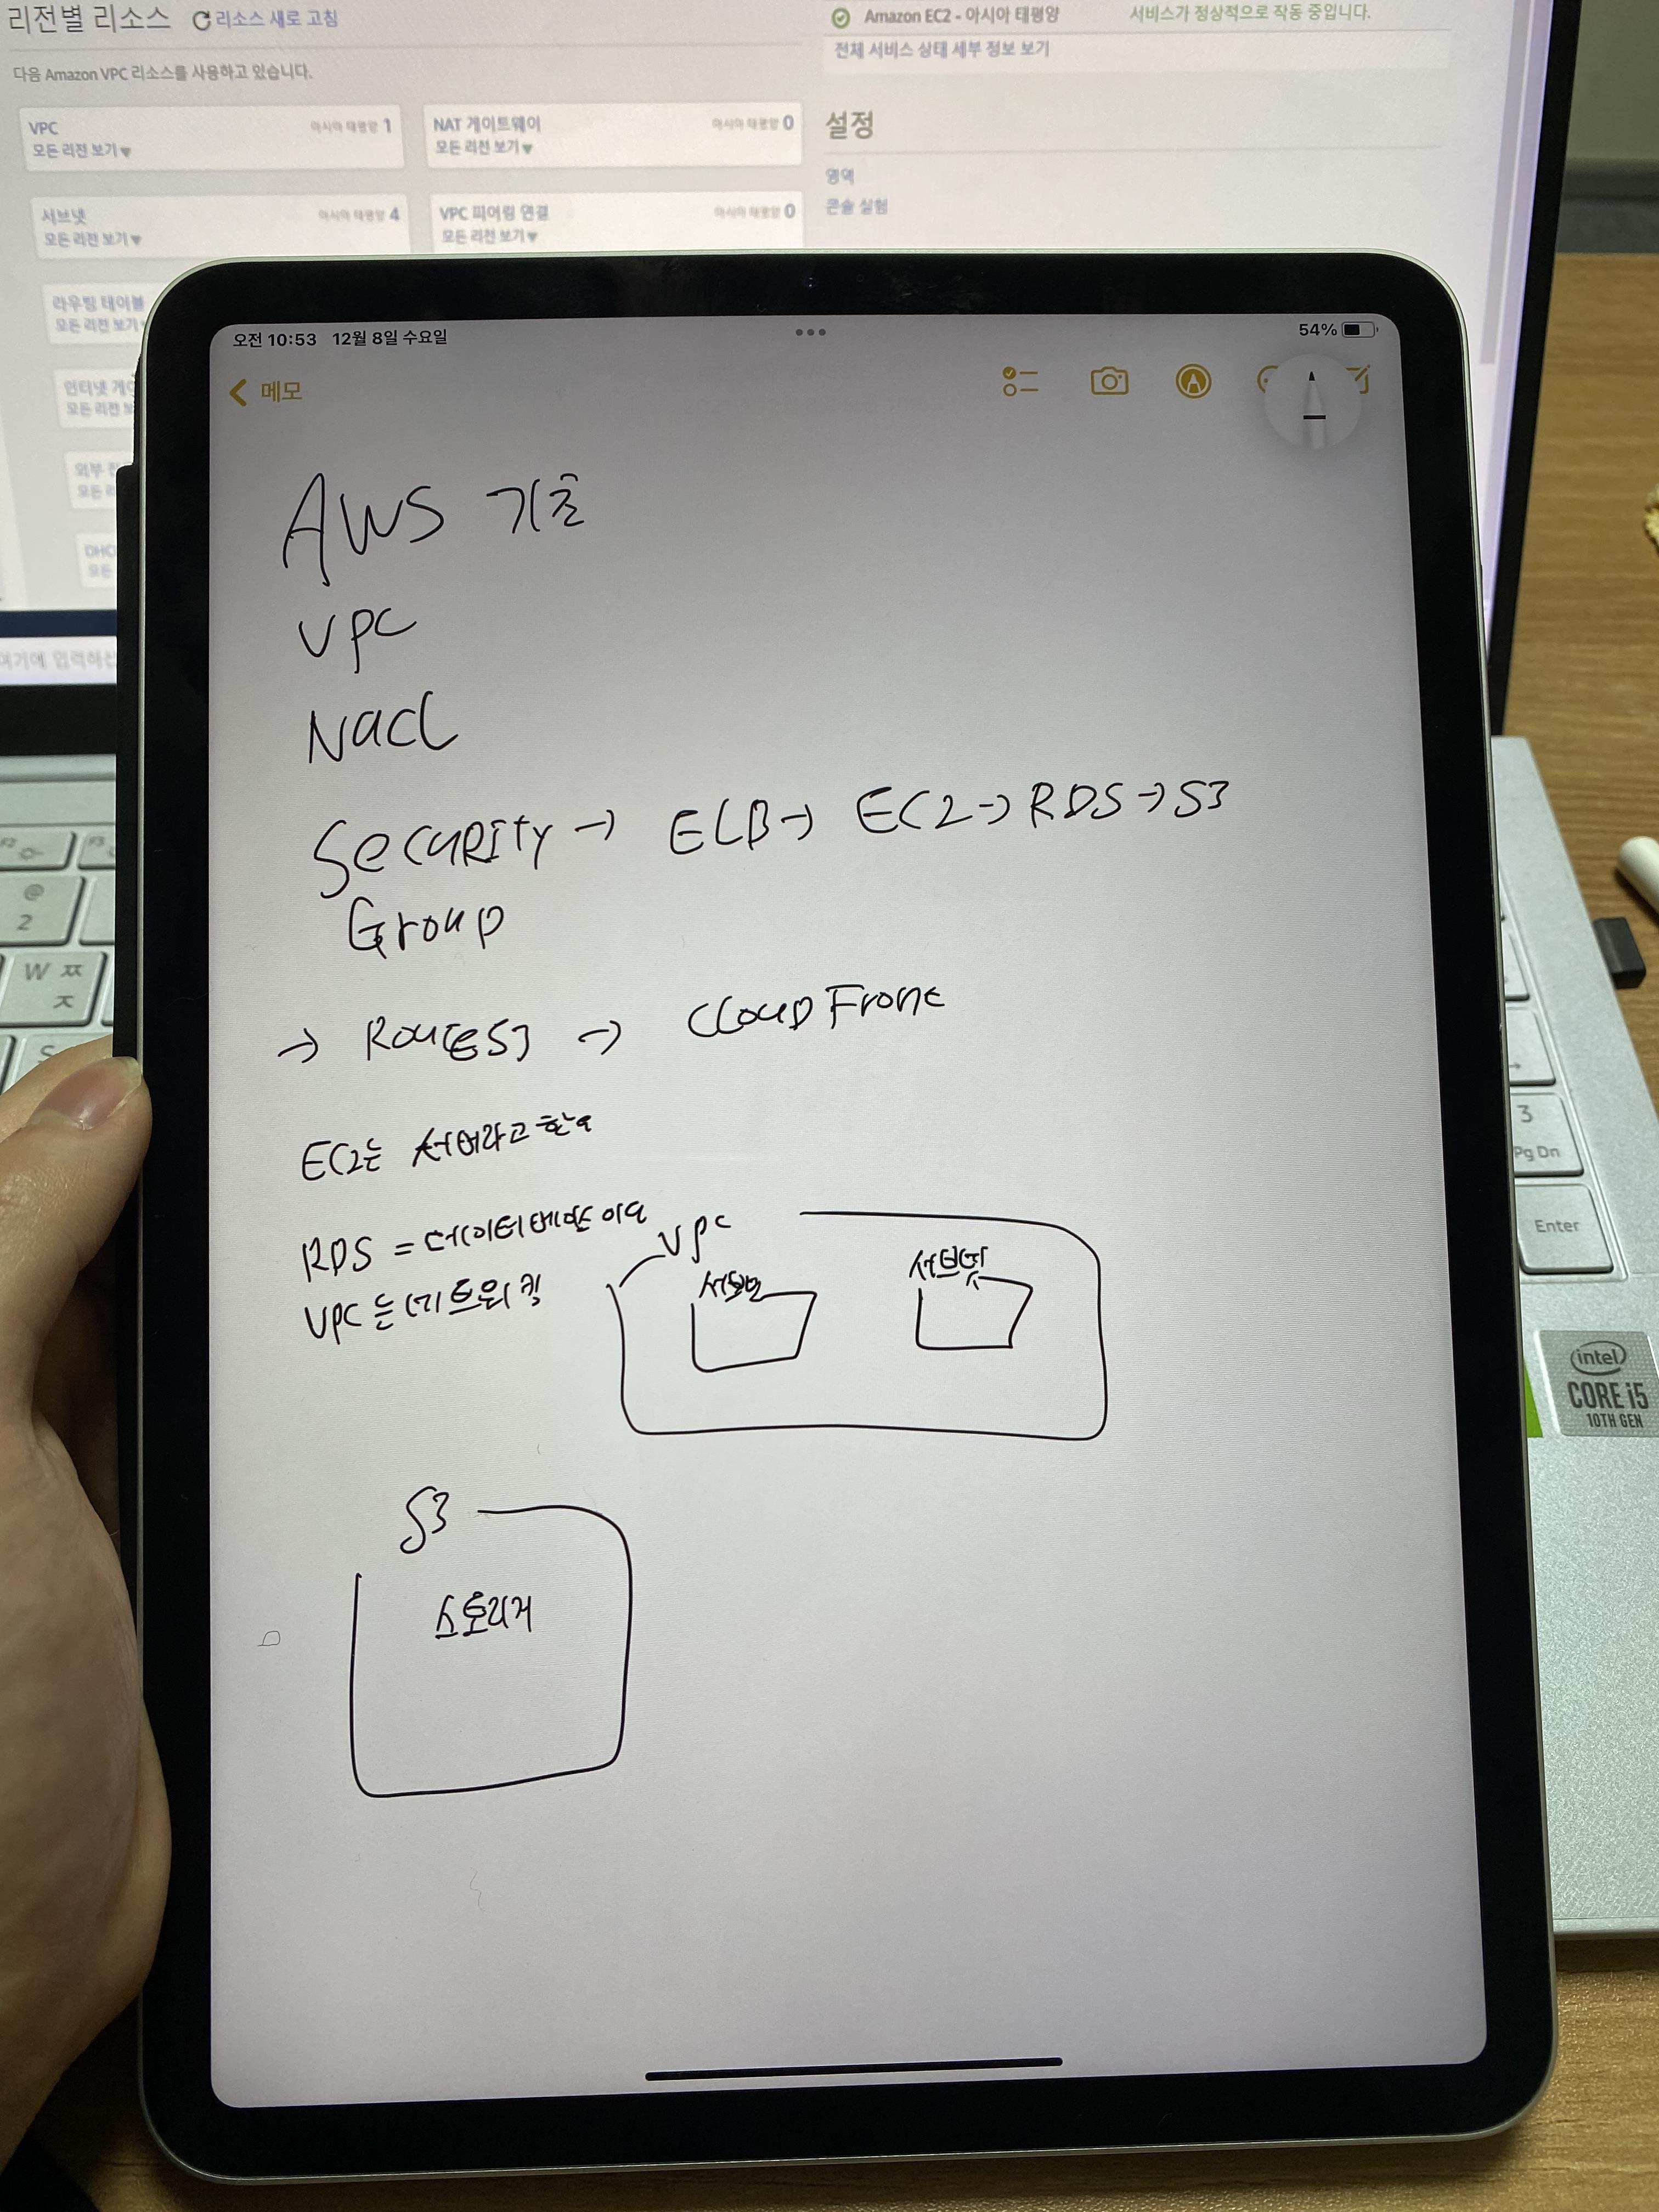 리전별 리소스 리소스 새로 고침
다음 Amazon VPC 리소스를 사용하고 있습니다.
VPC 아시아 태평양 1
모든 리전 보기
NAT 게이트웨이 아시아 태평양 0
모든 리전 보기
서브넷 아시아 태평양 4
모든 리전 보기
VPC 피어링 연결 아시아 태평양 0
모든 리전 보기
라우팅 테이블
모든 리전 보기
인터넷 게
모든 리전 보
외부 전
모든 리
DHC
모든
여기에 입력하
Amazon EC2 - 아시아 태평양 서비스가 정상적으로 작동 중입니다.
전체 서비스 상태 세부 정보 보기
설정
영역
콘솔 실험
오전 10:53 12월 8일 수요일
54%
메모
AWS 기초
VPC
Nacl
Security → ELB → EC2 → RDS → S3
Group
→ Route53 → CloudFront
EC2는 서버라고
RDS = 데이터베이스
VPC는 네트워킹
VPC
서브넷
서브넷
S3
스토리지
F2
F3
@
2
W ㅉ
ㅈ
S
3
Pg Dn
Enter
intel
CORE i5
10TH GEN